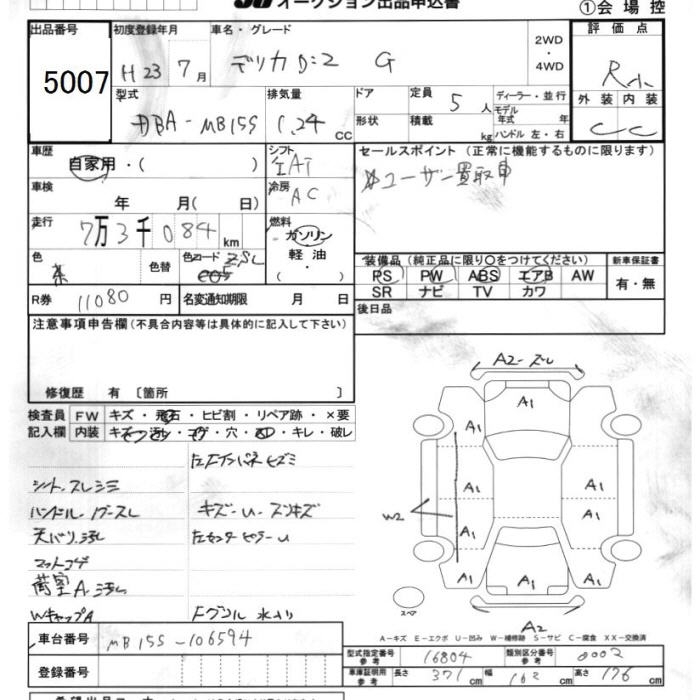 オークション出品申込書
①会場控
出品番号
5007
初度登録年月
H23 7月
車名・グレード
デリカ D:2 G
2WD
・
4WD
評価点
R
外装 内装
C C
型式
DBA-MB15S
排気量
1.24 cc
ドア
形状
定員 5人
積載 kg
ディーラー・並行
モデル年式 年
ハンドル 左・右
車歴
自家用・( )
シフト
IAT
冷房
AC
セールスポイント(正常に機能するものに限ります)
ユーザー買取車
車検
年 月( 日)
走行
7万3千084km
燃料
ガソリン
軽油
色
色替
色コード ZSC
R券 11080円
名変通知期限 月 日
装備品(純正品に限り○をつけてください)
PS PW ABS エアB AW
SR ナビ TV カワ
新車保証書
有・無
後日品
注意事項申告欄(不具合内容等は具体的に記入して下さい)
修復歴 有〔箇所 〕
検査員記入欄
FW キズ・飛石・ヒビ割・リペア跡・×要
内装 キズ・汚れ・コゲ・穴・凹・キレ・破レ
シート.スレシミ
ハンドル.
天バリ汚れ
マットコゲ
荷室A.汚れ
WキャップA
キズ-U-
A2-ズレ
A1
A1
A1
A1
A1
A1
A1
A1
A1
A1
W2
A2
スペア
A-キズ E-エクボ U-凹み W-補修跡 S-サビ C-腐食 XX-交換済
車台番号 MB15S-106594
登録番号
型式指定番号参考 16804
類別区分番号参考 0002
車庫証明用参考 長さ 371cm 幅 162cm 高さ 176cm